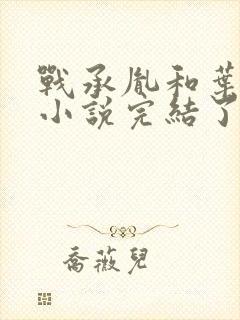 戰承胤和葉
小說完結了
喬薇兒